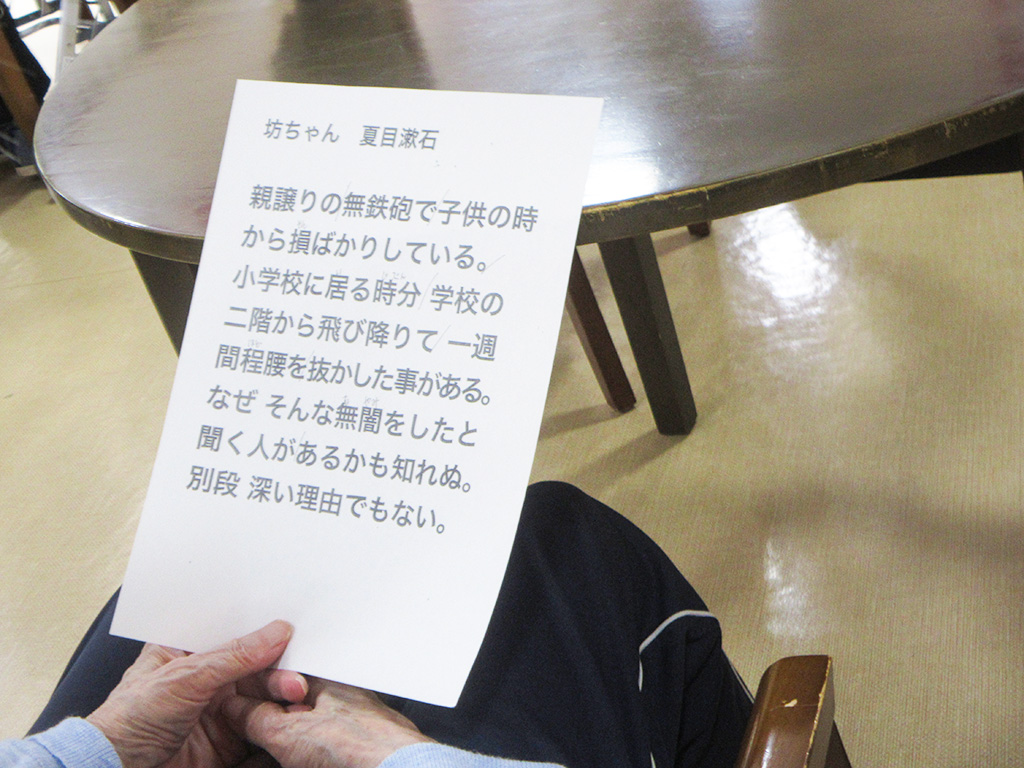 坊ちゃん 夏目漱石
親譲りの無鉄砲で子供の時
から損ばかりしている。
小学校に居る時分 学校の
二階から飛び降りて 一週
間程腰を抜かした事がある。
なぜ そんな無闇をしたと
聞く人があるかも知れぬ。
別段 深い理由でもない。